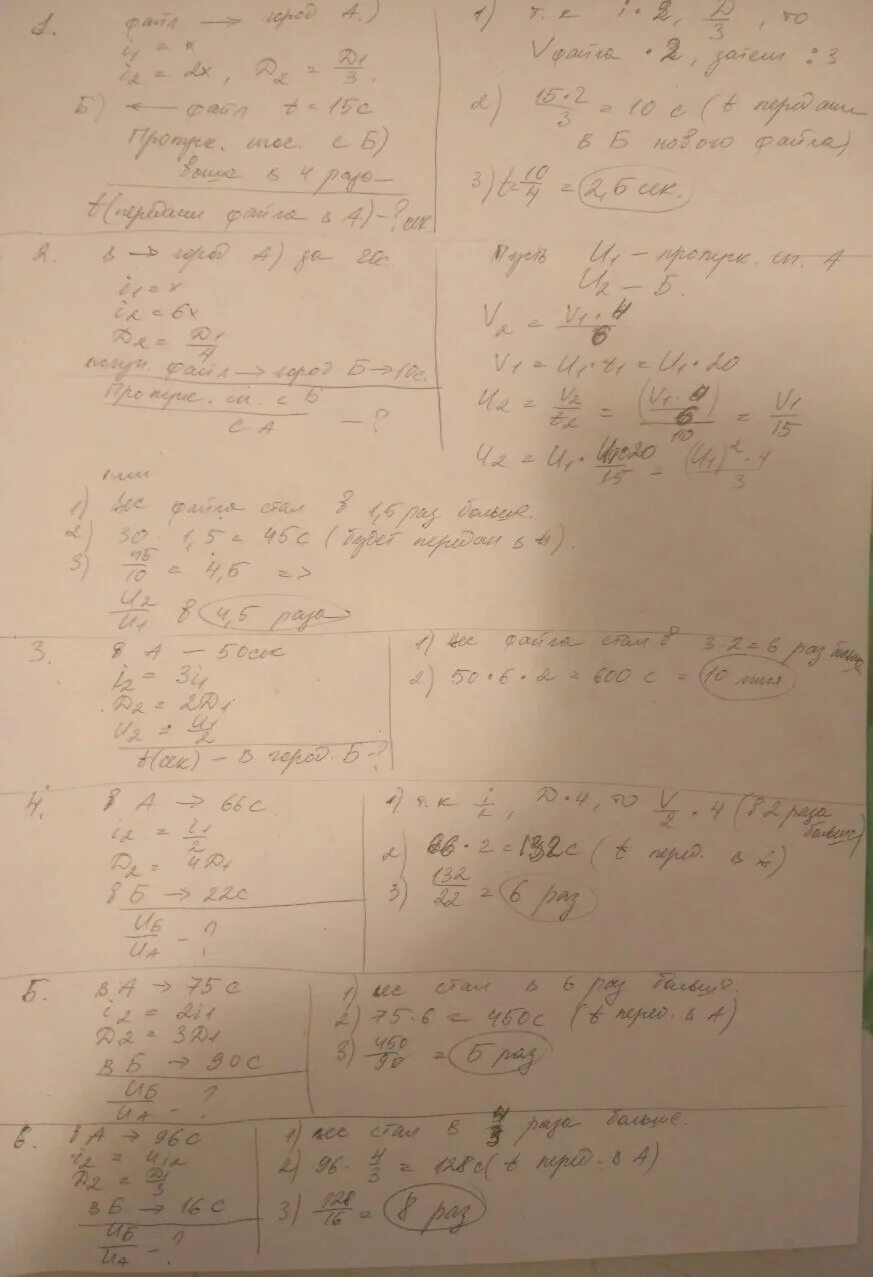 1. файл → город А.)
i1 = x
i2 = 2x, D2 = D1/3.
Б) ← файл t = 15с
Пропуск. с Б)
выше в 4 раза
t(передачи файла в А) - ? сек.
1) т.к i · 2, D/3, то
V файла · 2, затем : 3
2) 15·2/3 = 10 с (t передачи
в Б нового файла)
3) t = 10/4 = 2,5 сек.
2. В → город А) за
i1 = x
i2 = 6x
D2 = D1/4
файл → город Б → 10с.
Пропуск. с Б
с А - ?
Пусть U1 - пропуск. А
U2 - Б.
V2 = V1·4/6
V1 = U1·t1 = U1·20
U2 = V2/t2 = (V1·4/6)/10 = V1/15
U2 = U1· U1·20/15 = (U1)²·4/3
1) вес файла стал в 1,5 раз больше.
2) 30 · 1,5 = 45с (будет передан в А).
3) 45/10 = 4,5 =>
U2/U1 в 4,5 раза
3. в А - 50сек
i2 = 3i1
D2 = 2D1
U2 = U1/2
t(сек) - в город. Б - ?
1) вес файла стал в 3·2=6 раз больше.
2) 50·6·2 = 600 с = 10 мин
4. в А → 66с
i2 = i1/2
D2 = 4D1
в Б → 22с
UБ/UА - ?
1) т.к i/2, D·4, то V/2 · 4 (в 2 раза
больше)
2) 66·2 = 132с (t перед. в А)
3) 132/22 = 6 раз
5. в А → 75с
i2 = 2i1
D2 = 3D1
в Б → 90с
UБ/UА - ?
1) вес стал в 6 раз больше.
2) 75·6 = 450с (t перед. в А)
3) 450/90 = 5 раз
6. в А → 96с
i2 = 4i2
D2 = D1/3
в Б → 16с
UБ/UА - ?
1) вес стал в 4/3 раза больше.
2) 96 · 4/3 = 128с (t перед. в А)
3) 128/16 = 8 раз